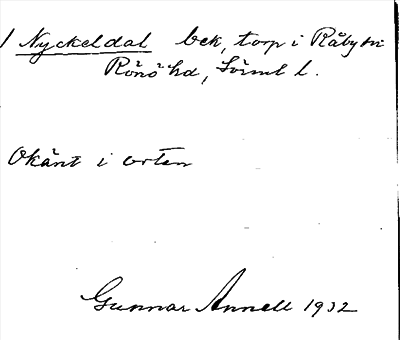 / Nyckeldal bek, torp i Råby sn
Rönö hd, Sörml l.
Okänt i orten
Gunnar Annell 1932